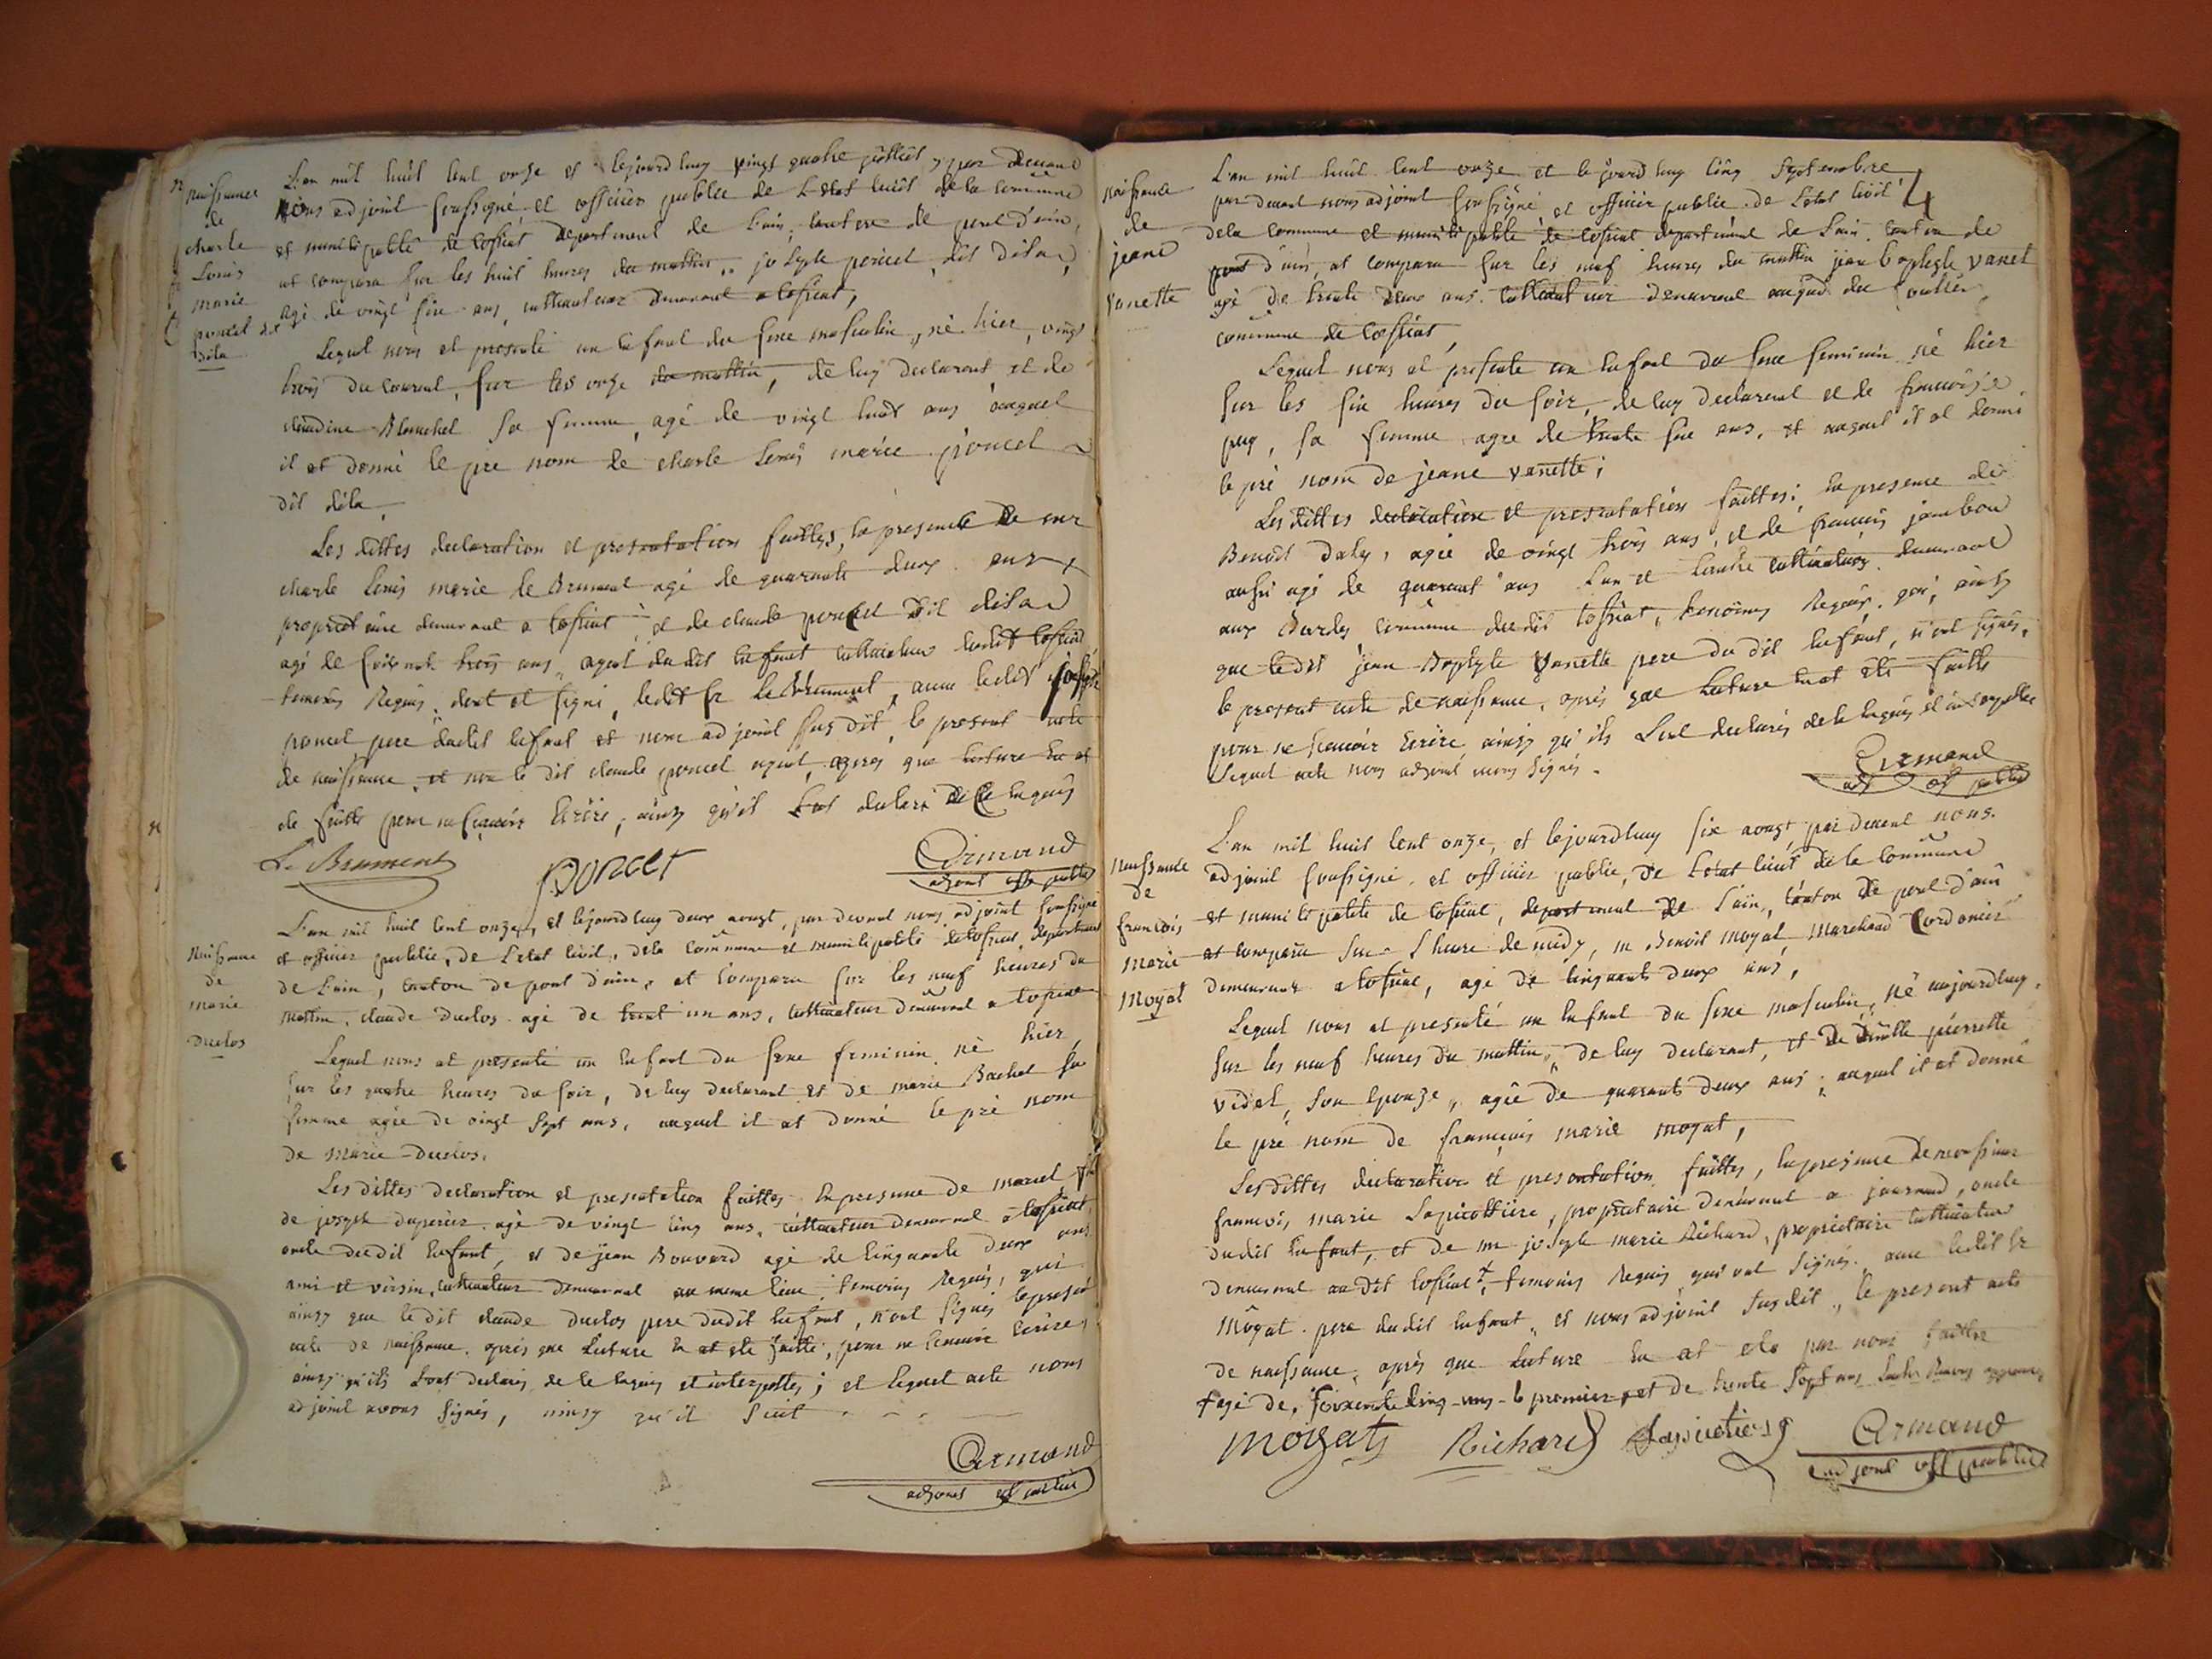 naissance
de
charle
Louis
marie
poncel dit
dila
L'an mil huit cent onze et lejourdhuy vingt quatre juillet, par devant
Nous adjoint soussigné et officier publie de L'etat civil de la commune
et municipalité de tossiat departement de L'ain, canton de pont d'ain,
at compara sur les huit heures du mattin, joseple poncel, dit dila,
agé de vingt six ans, cultivateur demeurant a tossiat,
Lequel nous at presenté un enfant du sexe masculin, né hier, vingt
trois du courant, sur les onze du mattin, de luy declarant, et de
claudine Blanchet sa femme, agé de vingt huit ans auquel
il at donné le pre nom de charle Louis marie poncel
dit dila
Les dittes declaration et presentation faittes, en presence de mr
charle Louis marie le Brument agé de quarante deux ans,
proprietaire demeurant a tossiat, et de claude poncet dit dila
agé de soixante trois ans, ayeul dudit enfant cultivateur dudit tossiat
temoins Requis, dont at signé, ledit sr Le Brument, avec ledit joseple
poncel pere dudit enfant et nous adjoint susdit, le present acte
de naissance, et non le dit claude poncel ayeul, apres que lecture en at
ete faitte pour ne scavoir Ecrire, ainsy qu'il L'at declaré de ce enquis
Le Brument
poncet
Armand
adjoint off public
Naissance
de
marie
Duclos
L'an mil huit cent onze, et lejourdhuy deux aoust, par devant nous adjoint soussigné
et officier publie, de L'etat civil, dela commune et municipalité de tossiat, departement
de L'ain, canton de pont d'ain, at compara sur les neuf heures du
mattin, claude duclos agé de trent un ans, cultivateur demeurant a tossiat
Lequel nous at presenté un enfant du sexe feminin né hier,
sur les quatre heures du soir, de luy declarant et de marie Bachet sa
femme agée de vingt sept ans, auquel il at donné le pré nom
de Marie Duclos.
Les dittes declaration et presentation faittes en presence de marcel fils
de joseph duperier agé de vingt cinq ans, cultivateur demeurant a tossiat,
oncle dudit enfant, et de jean Bouvard agé de cinquante deux ans
ami et voisin, cultivateur demeurant au meme lieu, temoins Requis, qui
ainsy que le dit claude duclos pere dudit enfant, n'ont signés le present
acte de naissance, aprés que Lecture en at eté faitte, pour ne scavoir ecrire,
ainsy qu'ils L'ont declarés, de ce enquis et interpellés; et lequel acte nous
adjoint avons signés, ainsy qu'il suit
Armand
adjoint off public
4
naissance
de
jeane
Vanette
L'an mil huit cent onze et le jourdhuy cinq septembre
par devant nous adjoint soussigné et officier publie de L'etat civil
dela commune et municipalité de tossiat departement de L'ain, canton de
pont d'ain, at compara sur les neuf heures du mattin jean baptiste vanet
agé de trente deux ans, cultivateur demeurant
commune de tossiat,
Lequel nous at presenté un enfant du sexe feminin né hier
sur les six heures du soir, de luy declarant et de francoise
puy, sa femme agée de trente six ans, et auquel il at donné
le pré nom de jeane vanette;
Les dittes declaration et presentation faittes; en presence de
Benoit daly, agée de vingt trois ans, et de francois jambon
aussi agé de quarant ans L'un et L'autre cultivateurs demeurant
aux commune dudit tossiat, temoins Requis, qui, ainsy
que ledit jean Baptiste Vanette pere du dit enfant, n'ont signés,
le present acte de naissance, aprés que lecture en at eté faitte
pour ne scavoir Ecrire, ainsy qu'ils L'ont declarés de ce enquis et interpellés
Lequel acte nous adjoint avons signés.
Armand
adj off public
Naissance
de
francois
Marie
Moyat
L'an mil huit cent onze, et lejourdhuy six aoust, par devant nous.
adjoint soussigné, et officier publie, de L'etat civil de la commune
et municipalité de tossiat, departement de L'ain, canton de pont d'ain
at compara sur L'heure de midy, sr Benoit moyat, marchand Cordonier
demeurant a tossiat, agé de cinquante deux ans,
Lequel nous at presenté un enfant du sexe masculin, né aujourdhuy,
sur les neuf heures du mattin, de luy declarant, et de pierrette
vidal, son Epouze, agée de quarante deux ans; auquel il at donné
le pré nom de francois marie moyat,
Les dittes declaration et presentation faittes, en presence de monsieur
francois, marie Lapicottiere, proprietaire demeurant a journand, oncle
dudit enfant, et de mr joseple marie Richard, proprietaire cultivateur
demeurant au dit tossiat, + temoins Requis, qui ont signés, avec ledit sr
Moyat pere dudit enfant, et nous adjoint susdit, le present acte
de naissance, après que lecture en at ete par nous faitte
+ agé de soixante cinq ans le premier, et de trente sept ans
moyat
Richard
Lapicotiere
Armand
adjoint off public